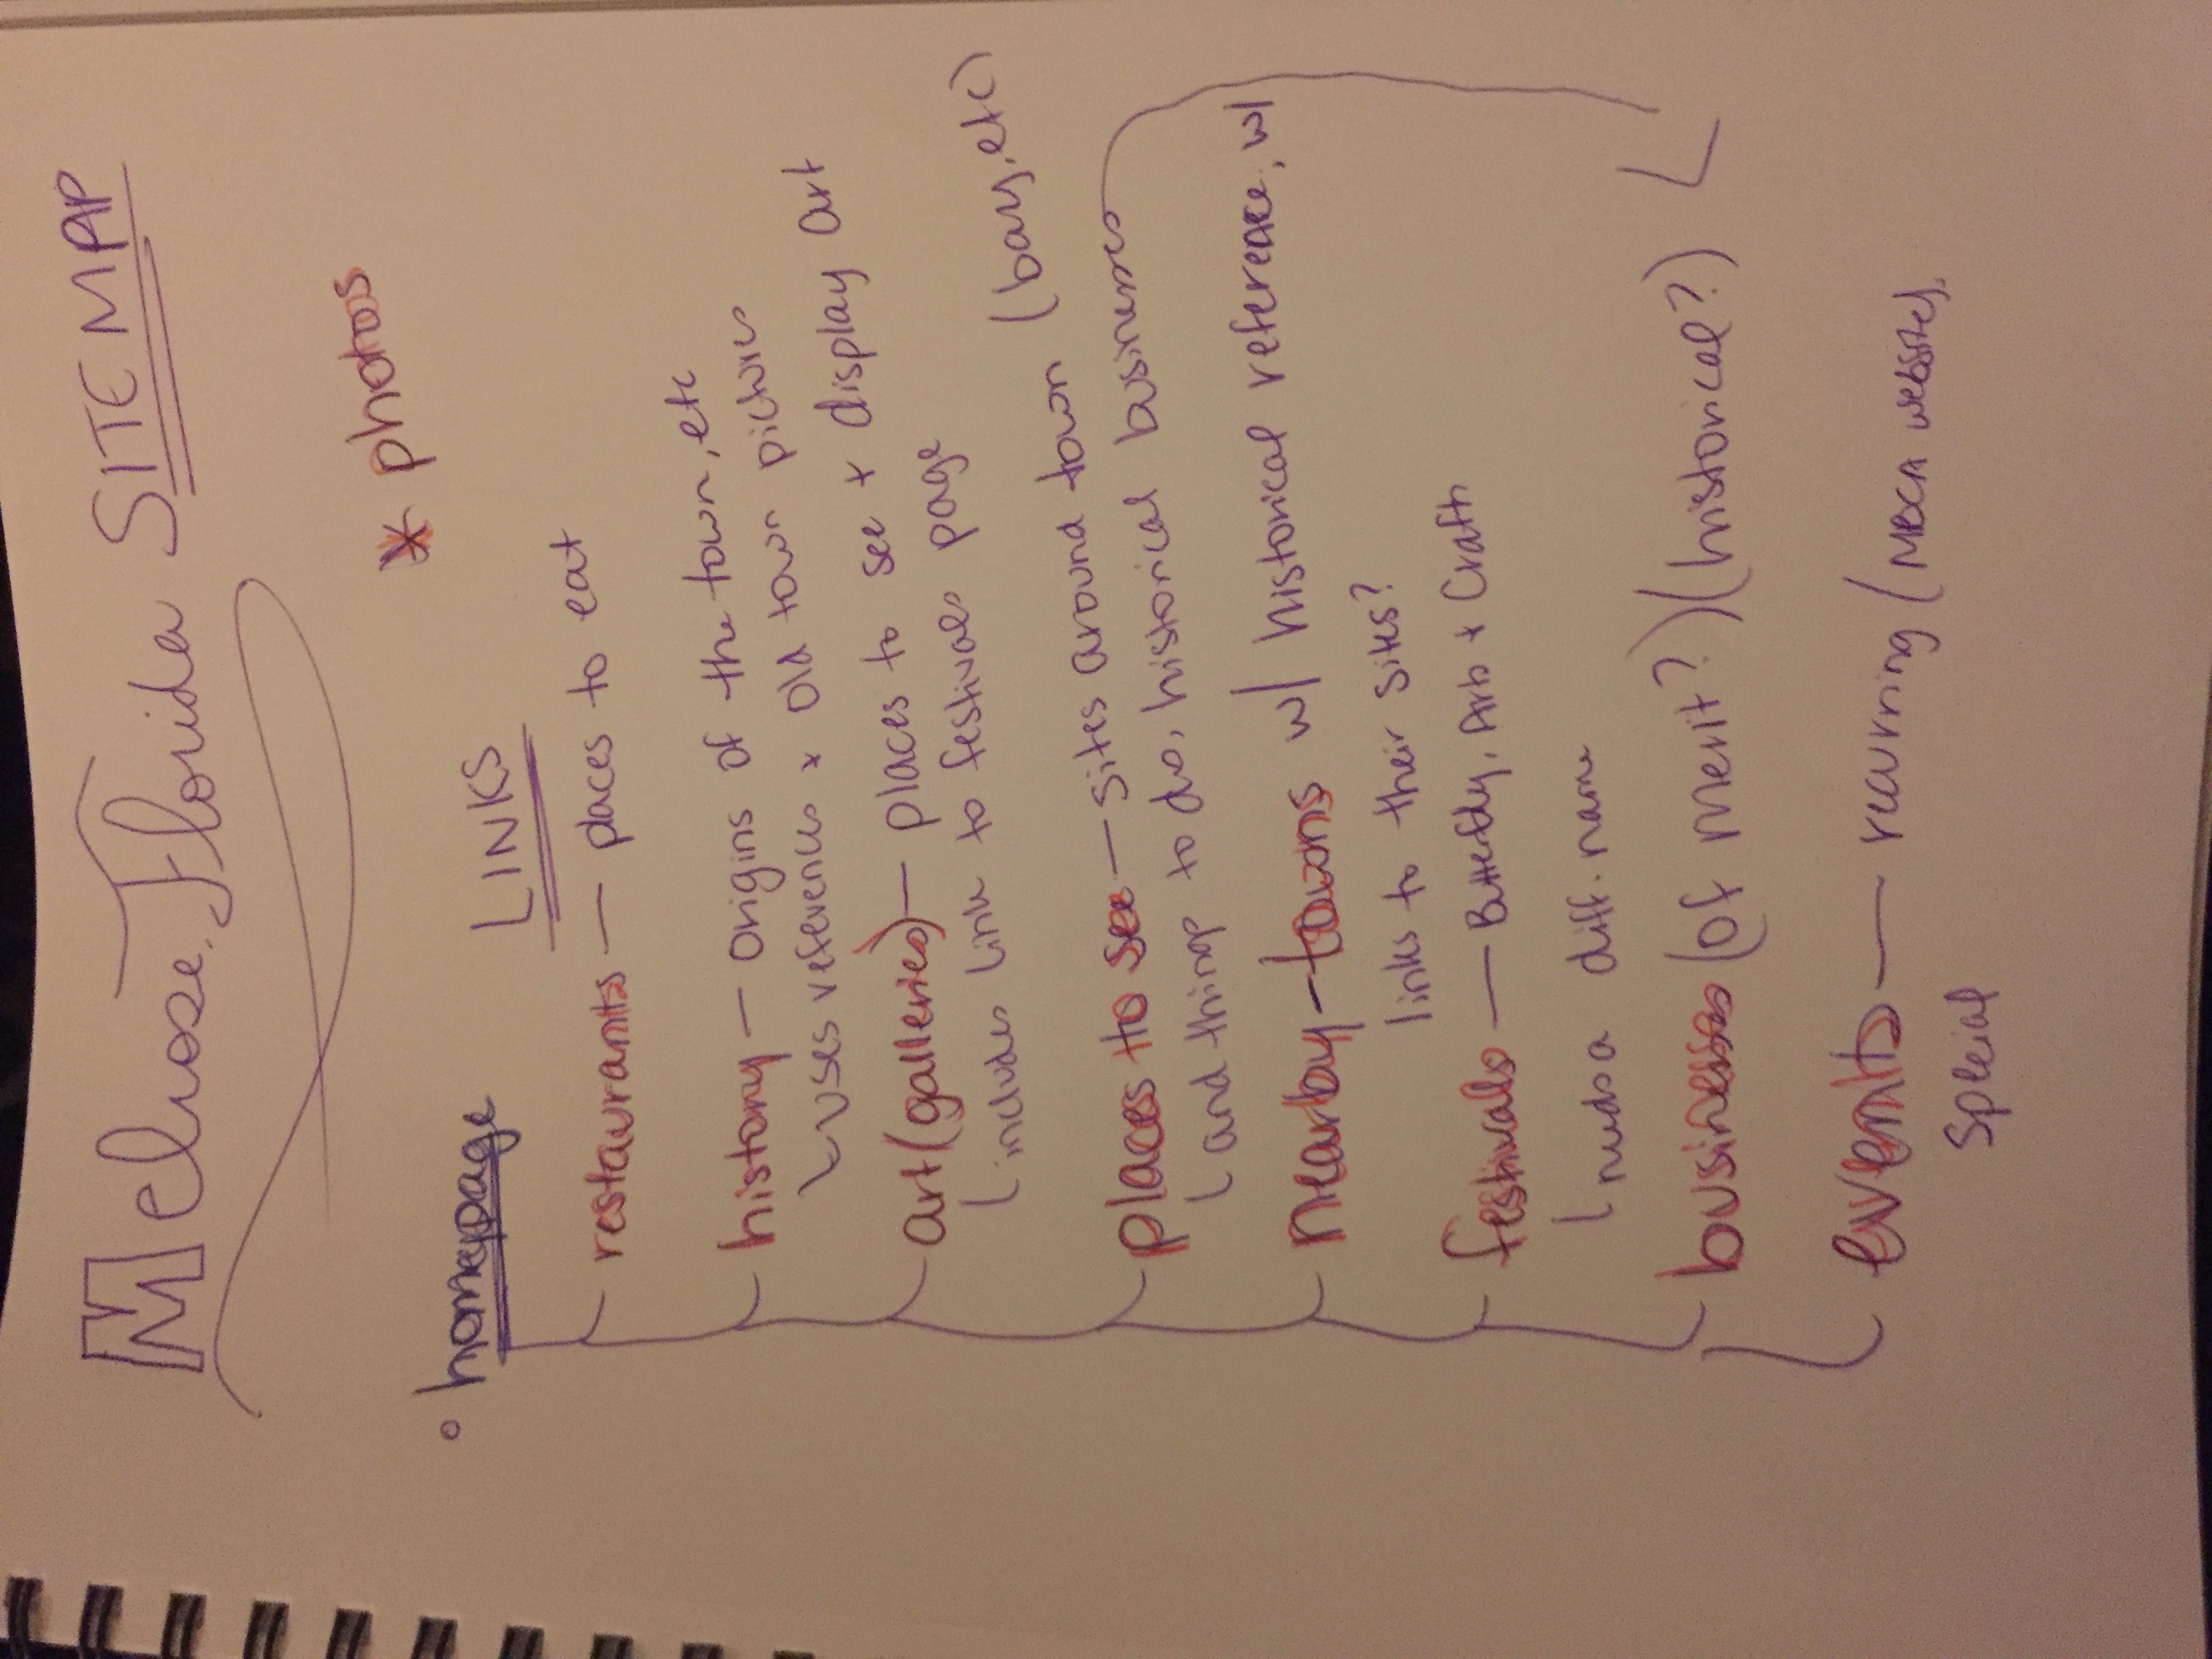 Melrose, Florida SITE MAP
* photos
• homepage LINKS
restaurants — places to eat
history — origins of the town, etc
uses references + old town pictures
art (galleries) — places to see + display art
includes link to festivals page
places to see — sites around town (bay, etc)
and things to do, historical businesses
nearby towns w/ historical reference, w/
links to their sites?
festivals — Butterfly, Arts + Crafts
needs a diff. name
businesses (of merit?) (historical?)
events — recurring (MBCA website),
special